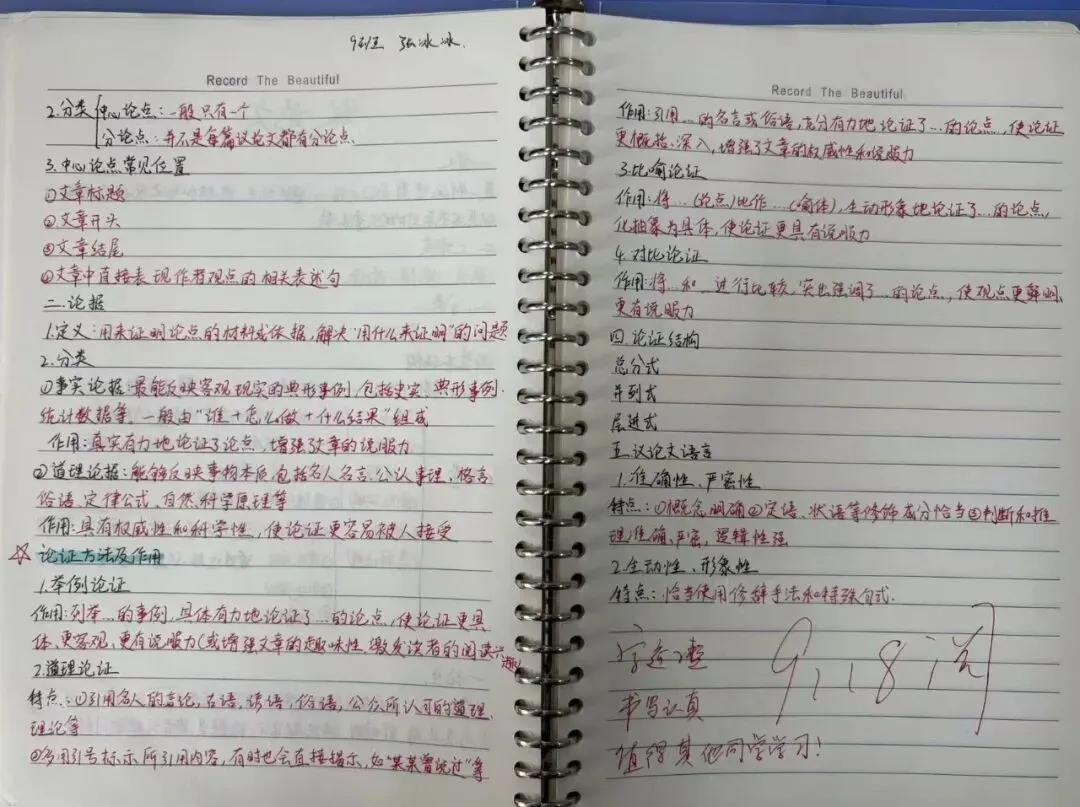 9班 张冰冰.
Record The Beautiful
2.分类 中心论点:一般只有一个
分论点:并不是每篇议论文都有分论点
3.中心论点常见位置
①文章标题
②文章开头
③文章结尾
④文章中直接表现作者观点的相关表述句
二.论据
1.定义:用来证明论点的材料或依据,解决"用什么来证明"的问题
2.分类
①事实论据:最能反映客观现实的典形事例,包括史实、典形事例、
统计数据等,一般由"谁+怎么做+什么结果"组成
作用:真实有力地论证了论点,增强文章的说服力
②道理论据:能够反映事物本质,包括名人名言、公认事理、格言
俗语、定律公式、自然科学原理等
作用:具有权威性和科学性,使论证更容易被人接受
☆论证方法及作用
1.举例论证
作用:列举…的事例,具体有力地论证了…的论点,使论证更具
体、更客观、更有说服力(或增强文章的趣味性,激发读者的阅读兴趣)
2.道理论证
特点:①引用名人的言论,古语,谚语,俗语,公众所认可的道理、
理论等
②多用引号标示所引用内容,有时也会直接揭示,如"某某曾说过"等
Record The Beautiful
作用:引用…的名言或俗语,充分有力地论证了…的论点,使论证
更概括、深入,增强了文章的权威性和说服力
3.比喻论证
作用:将…(论点)比作…(喻体),生动形象地论证了…的论点,
化抽象为具体,使论证更具有说服力
4.对比论证
作用:将…和…进行比较,突出强调了…的论点,使观点更鲜明,
更有说服力
四.论证结构
总分式
并列式
层进式
五.议论文语言
1.准确性、严密性
特点:①概念明确②定语、状语等修饰成分恰当③判断和推
理准确、严密,逻辑性强
2.生动性、形象性
特点:恰当使用修辞手法和特殊句式.
字迹
书写认真
值得其他同学学习!
9.18 阅